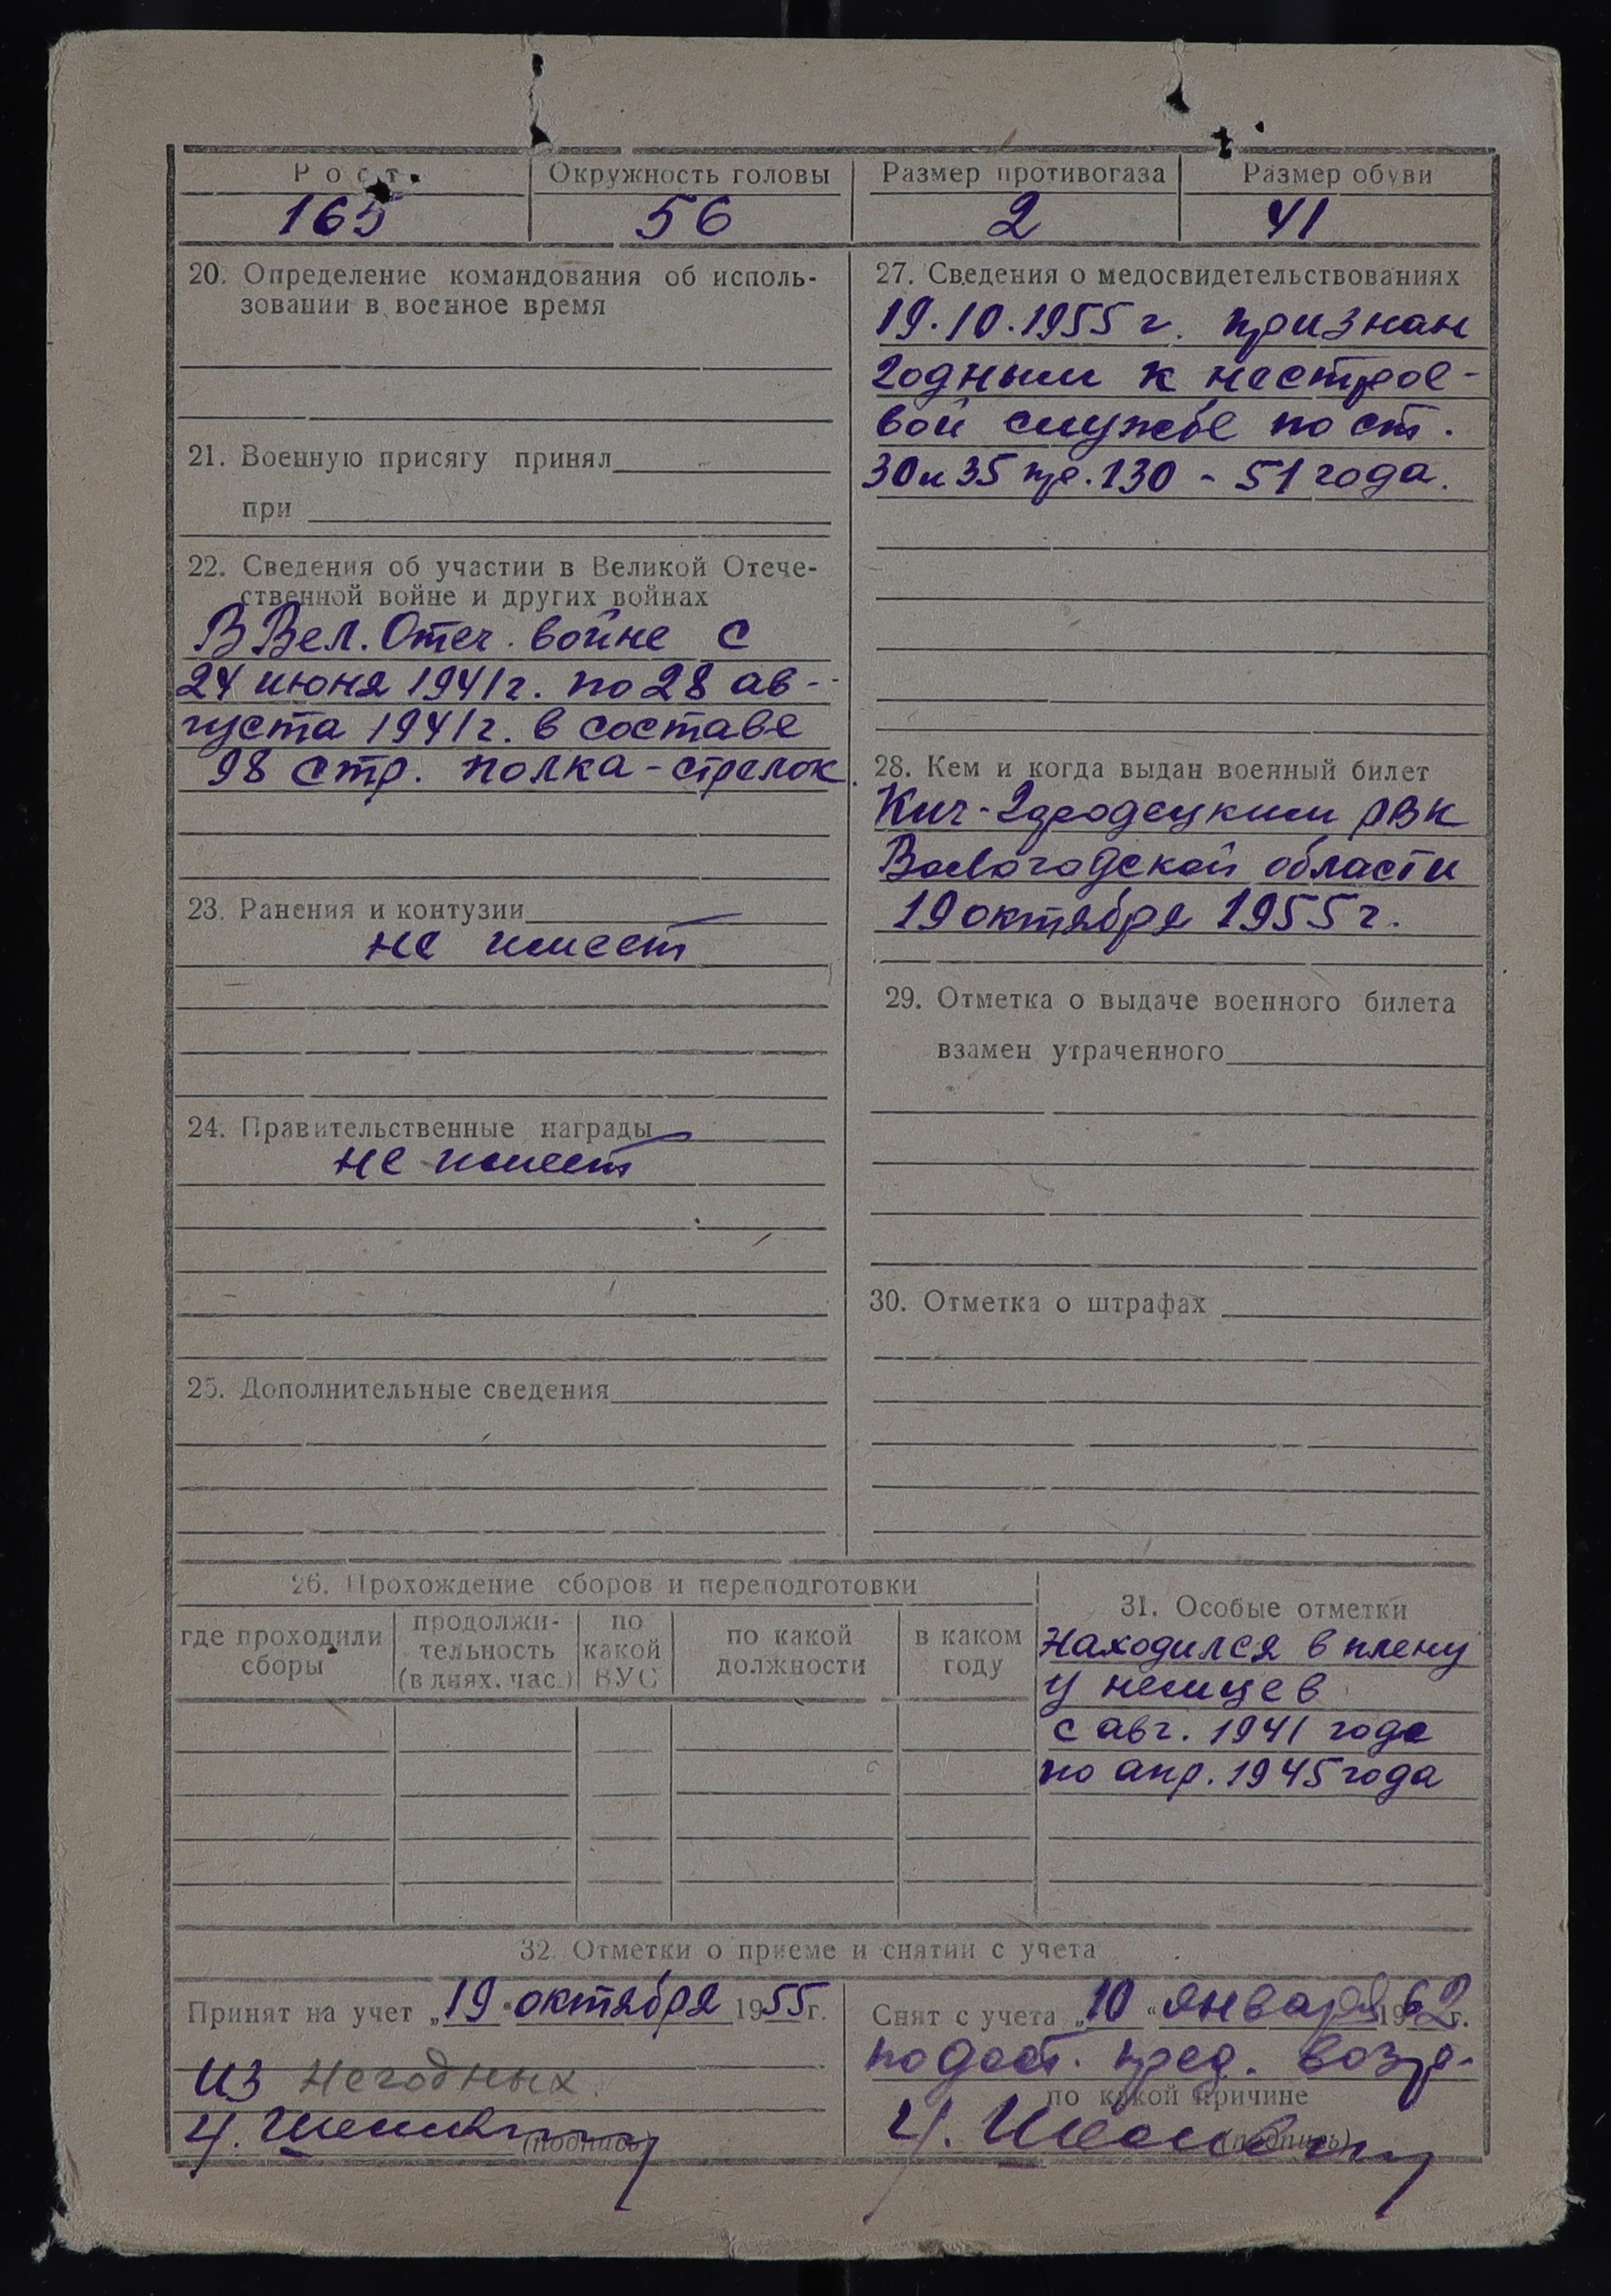 Рост
Окружность головы
Размер противогаза
Размер обуви
165
56
2
41
20. Определение командования об исполь-
зовании в военное время
21. Военную присягу принял
при
22. Сведения об участии в Великой Отече-
ственной войне и других войнах
В Вел. Отеч. войне с
24 июня 1941 г. по 28 ав-
густа 1941 г. в составе
98 стр. полка - стрелок.
23. Ранения и контузии
не имеет
24. Правительственные награды
не имеет
25. Дополнительные сведения
27. Сведения о медосвидетельствованиях
19.10.1955 г. признан
годным к нестрое-
вой службе по ст.
30 и 35 пр. 130 - 51 года.
28. Кем и когда выдан военный билет
Кич-Городецким РВК
Вологодской области
19 октября 1955 г.
29. Отметка о выдаче военного билета
взамен утраченного
30. Отметка о штрафах
26. Прохождение сборов и переподготовки
где проходили
сборы
продолжи-
тельность
(в днях, час.)
по
какой
ВУС
по какой
должности
в каком
году
31. Особые отметки
Находился в плену
у немцев
с авг. 1941 года
по апр. 1945 года
32. Отметки о приеме и снятии с учета
Принят на учет „19“ октября 1955 г.
из негодных.
(подпись)
Снят с учета „10“ января 1962 г.
по дост. пред. возр.
по какой причине
(подпись)